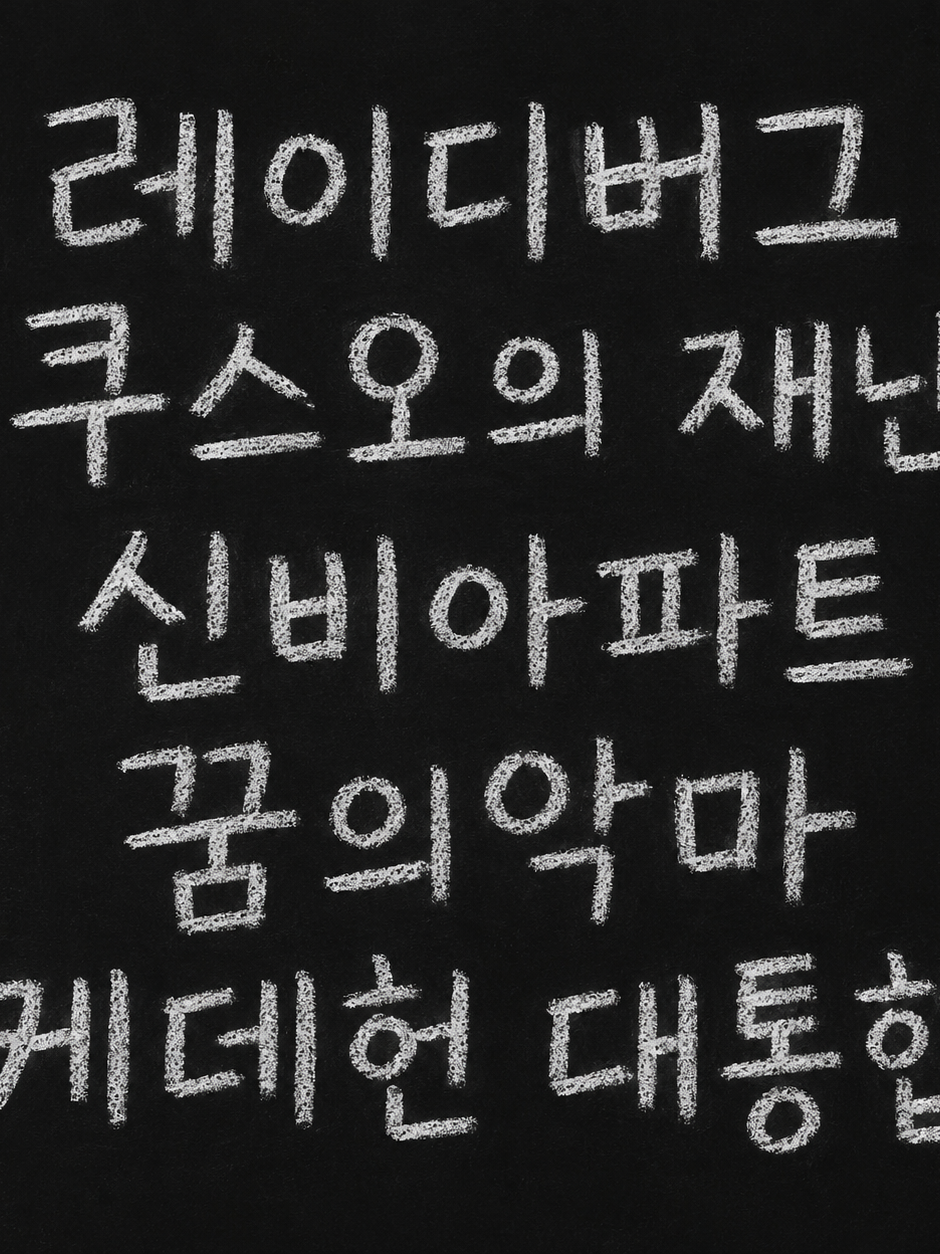 레이디버그
쿠스오의 재난
신비아파트
꿈의악마
케데헌 대통합